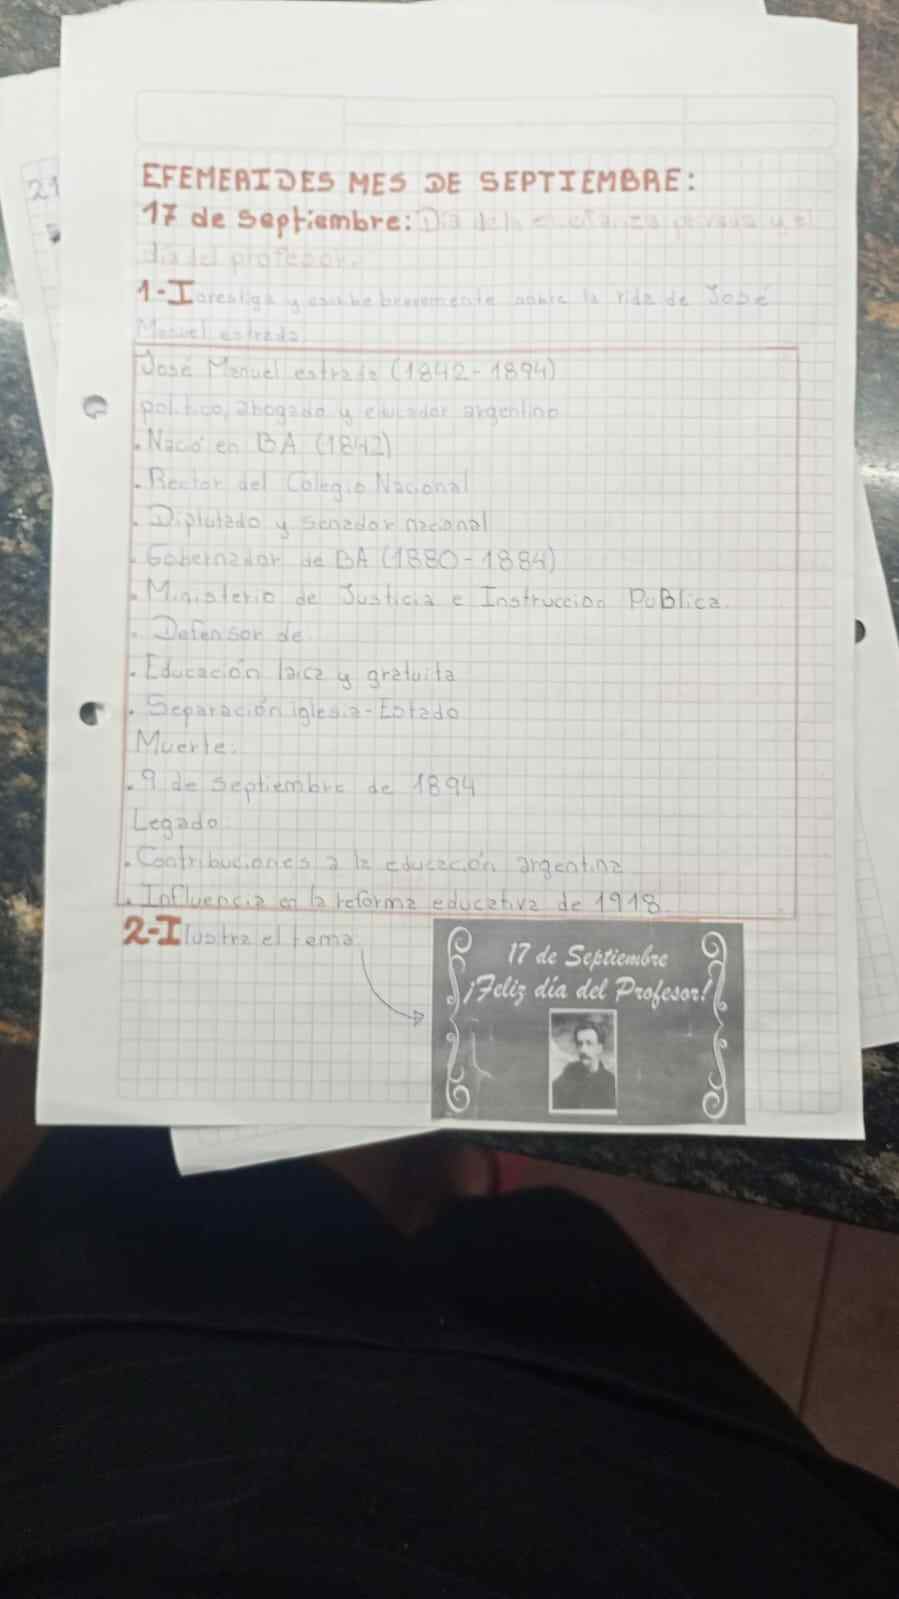 21
EFEMERIDES MES DE SEPTIEMBRE:
17 de Septiembre: Dia de la enseñanza privada y el
día del profesor.
1-Investiga y escribe brevemente sobre la vida de José
Manuel estrada
José Manuel estrada (1842-1894)
político, abogado y educador argentino
. Nació en BA (1842)
. Rector del Colegio Nacional
. Diplutado y senador nacional
. Gobernador de BA (1880-1884)
. Ministerio de Justicia e Instrucción PuBlica.
. Defensor de
. Educación laica y gratuita
. Separación iglesia-Estado
Muerte:
. 9 de septiembre de 1894
Legado
. Contribuciones a la educación argentina
. Influencia en la reforma educativa de 1918
2-Ilustra el tema
17 de Septiembre
¡Feliz día del Profesor!